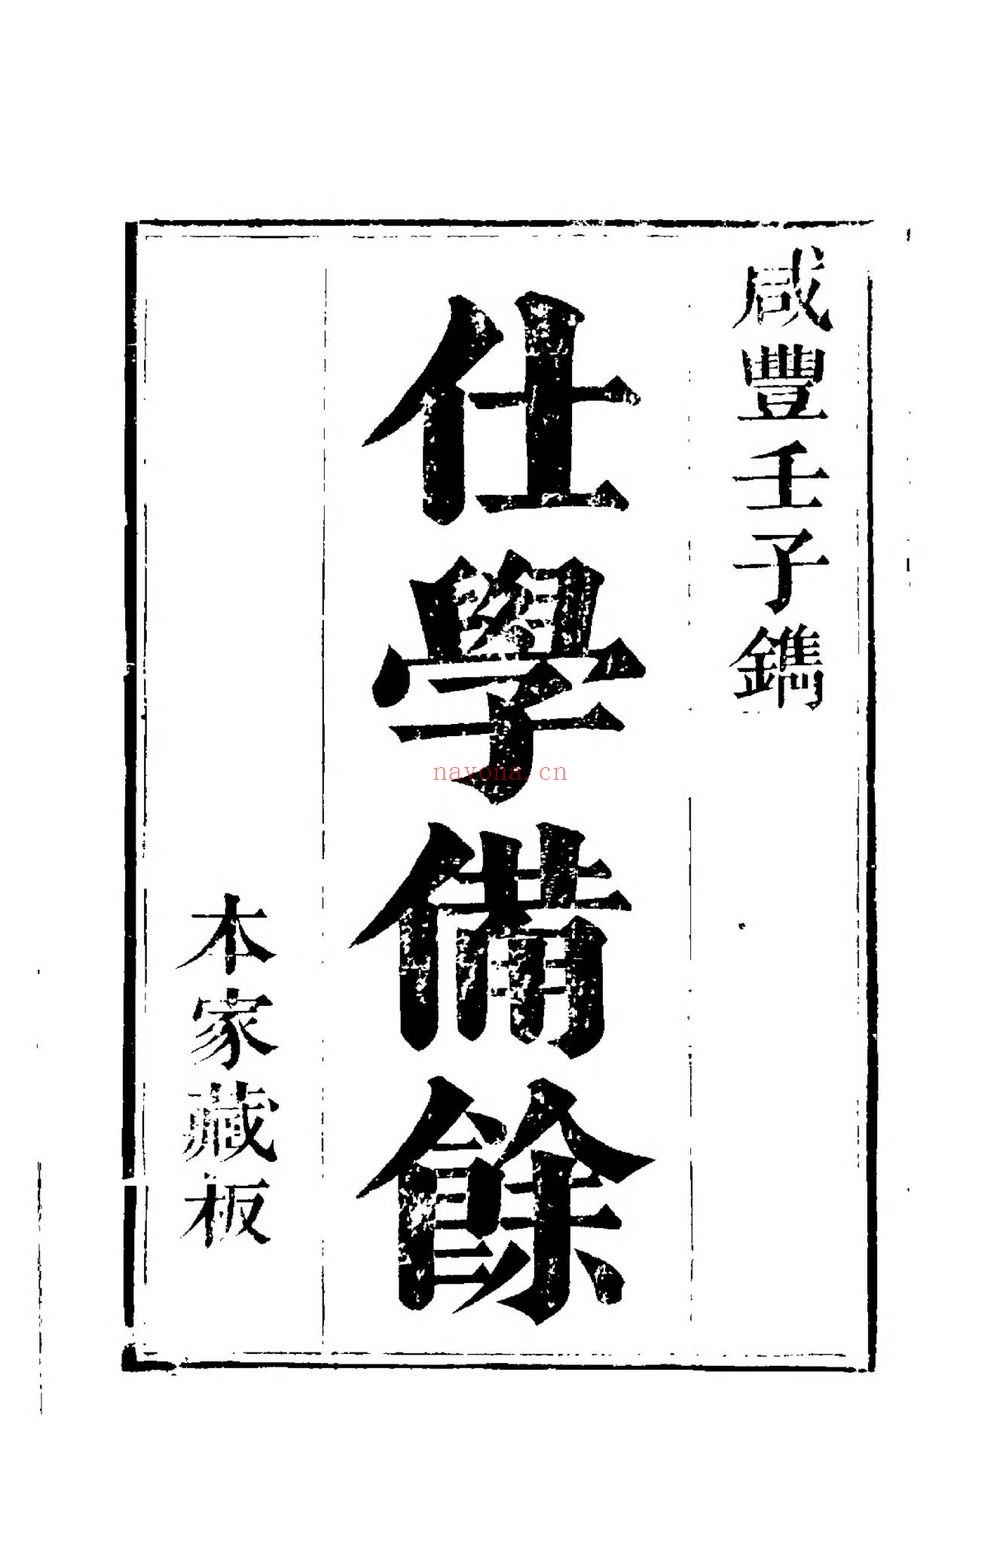 咸豐壬子鐫
仕學備餘
本家藏板
nayona.cn